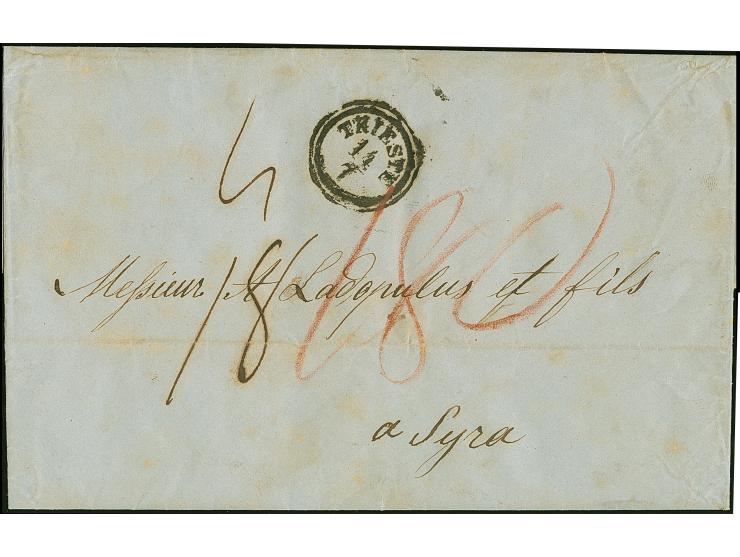 TRIESTE
14
7
18
180
Messieur A Ladopulus et fils
a Syra